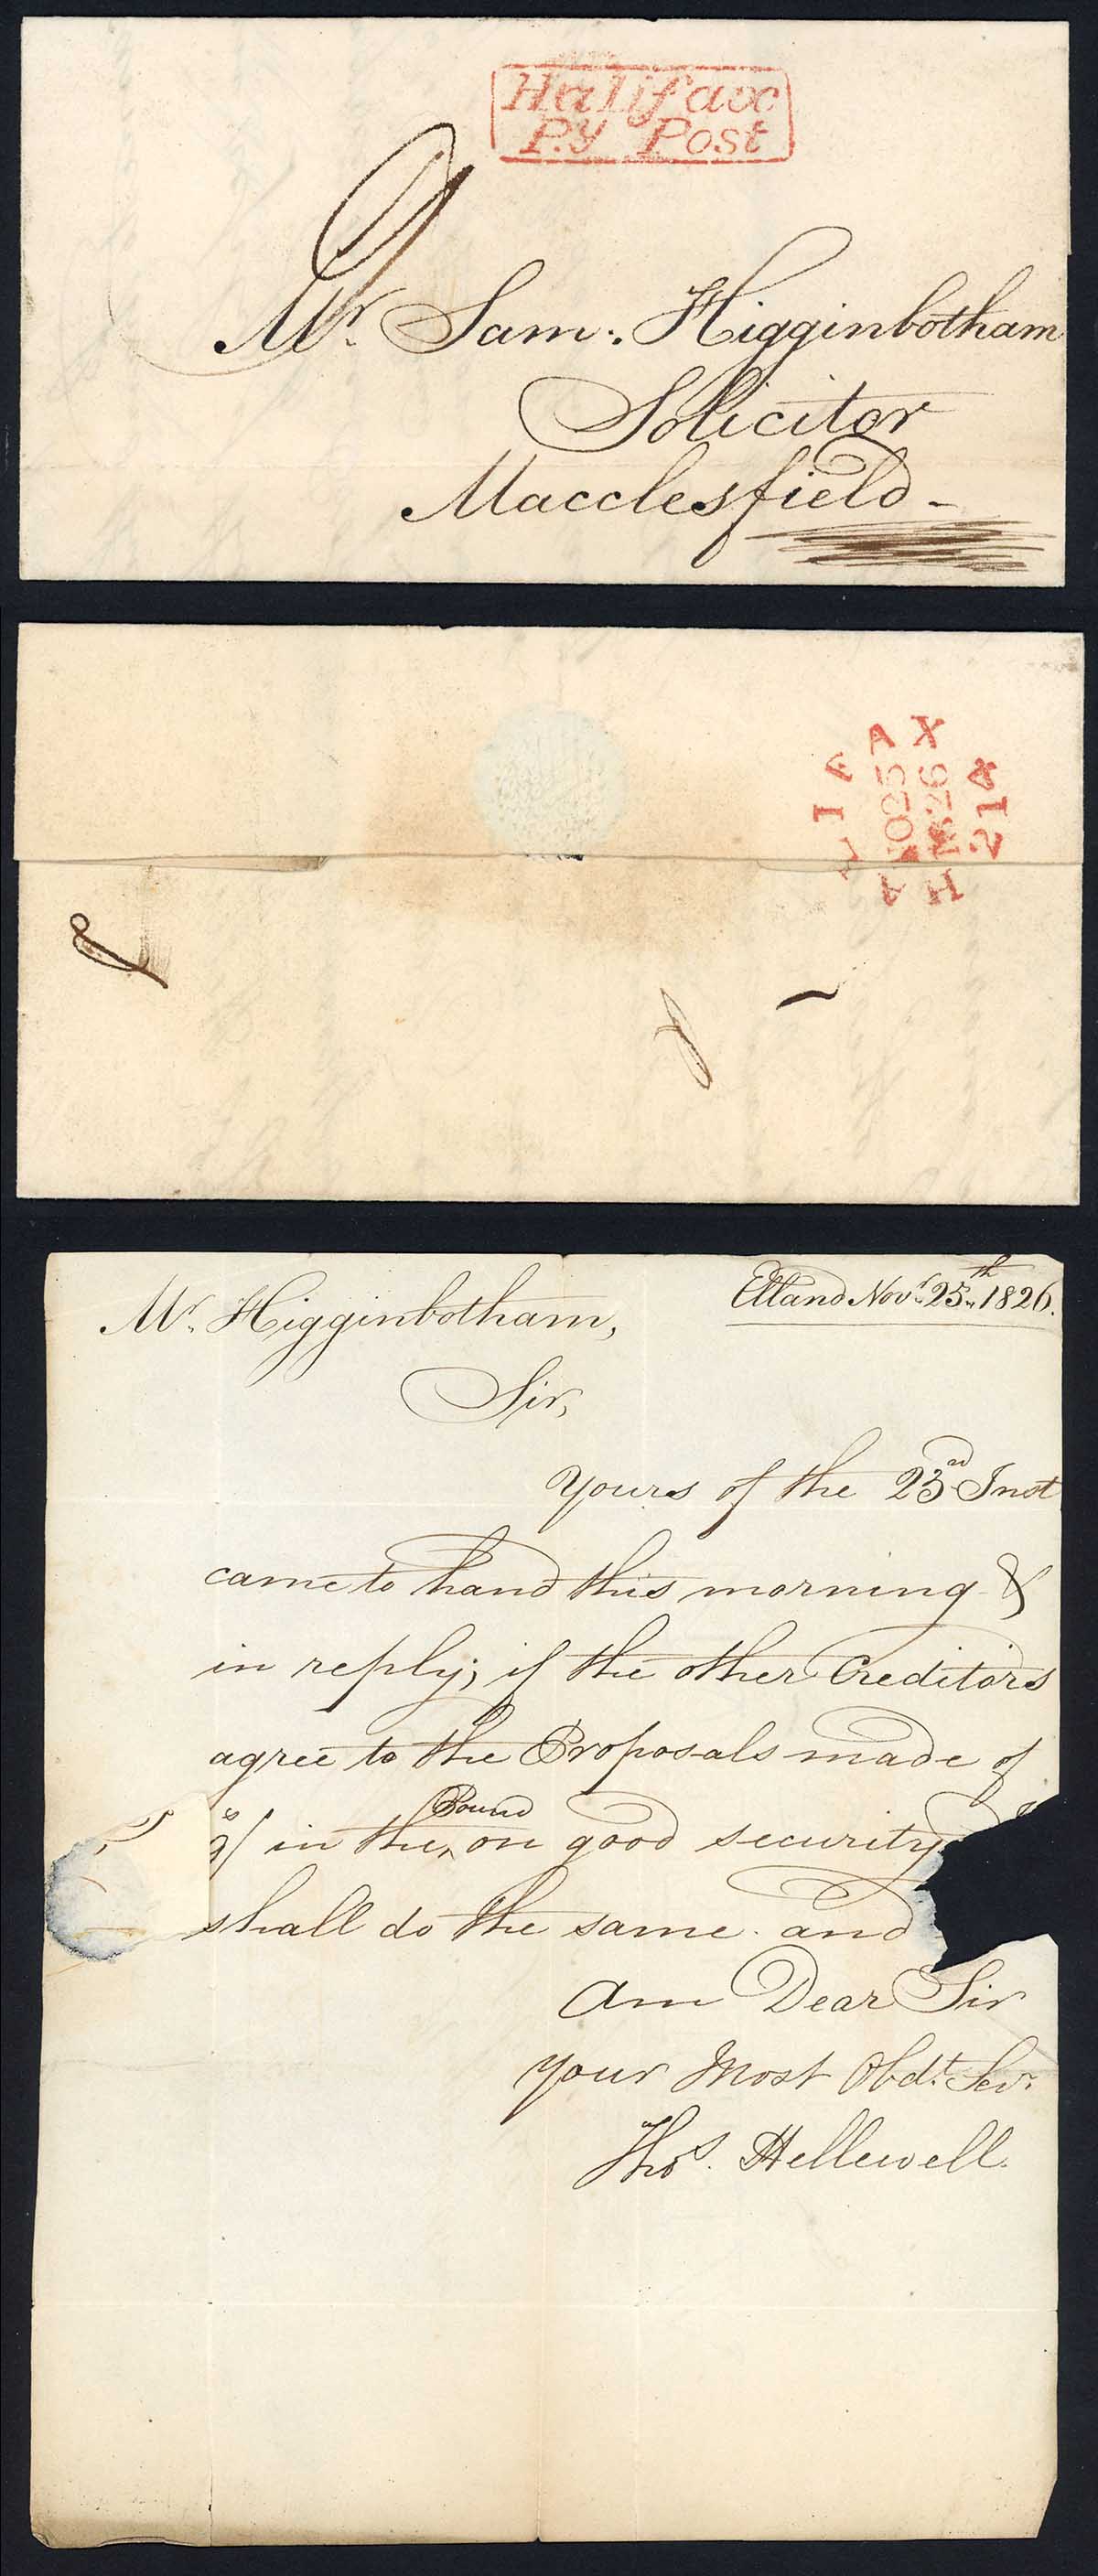 Halifax
P.y Post
9
Mr. Sam: Higginbotham
Solicitor
Macclesfield -
HALIFAX
NO25
1826
214
Elland Novr. 25th 1826.
Mr. Higginbotham,
Sir,
Yours of the 23rd Inst
came to hand this morning &
in reply; if the other Creditors
agree to the Proposals made of
Pound
in the ‸ on good security
shall do the same. and
Am Dear Sir
Your Most Obdt. Servt.
Thos. Hellewell.